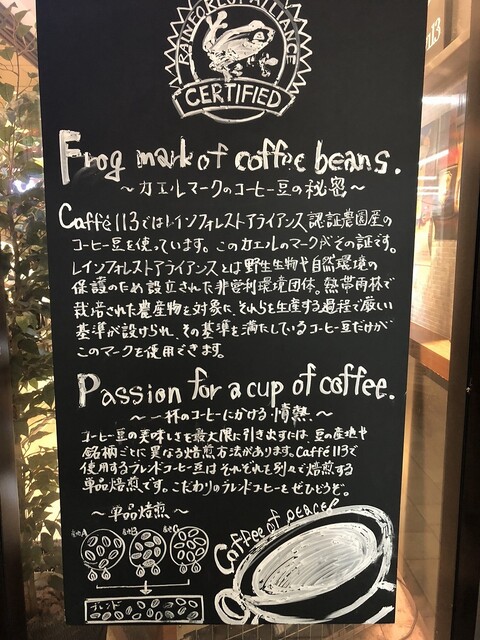 RAINFOREST ALLIANCE
CERTIFIED
Frog mark of coffee beans.
～カエルマークのコーヒー豆の秘密～
Caffé 113ではレインフォレストアライアンス認証農園産の
コーヒー豆を使っています。このカエルのマークがその証です。
レインフォレストアライアンスとは野生生物や自然環境の
保護のため設立された非営利環境団体。熱帯雨林で
栽培された農産物を対象に、それらを生産する過程で厳しい
基準が設けられ、その基準を満たしているコーヒー豆だけが
このマークを使用できます。
Passion for a cup of coffee.
～一杯のコーヒーにかける情熱～
コーヒー豆の美味しさを最大限に引き出すには、豆の産地や
銘柄ごとに異なる焙煎方法があります。Caffé 113で
使用するブレンドコーヒー豆はそれぞれを別々で焙煎する
単品焙煎です。こだわりのブレンドコーヒーをぜひどうぞ。
～単品焙煎～
Coffee of peace
ブレンド